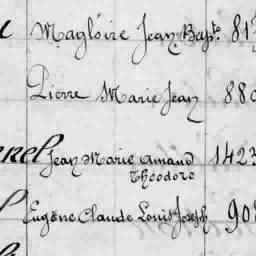 Magloire Jean Bapte 81
Pierre Marie Jean 880
nel Jean Marie Amand 1423
Théodore
Eugène Claude Louis Joseph 90